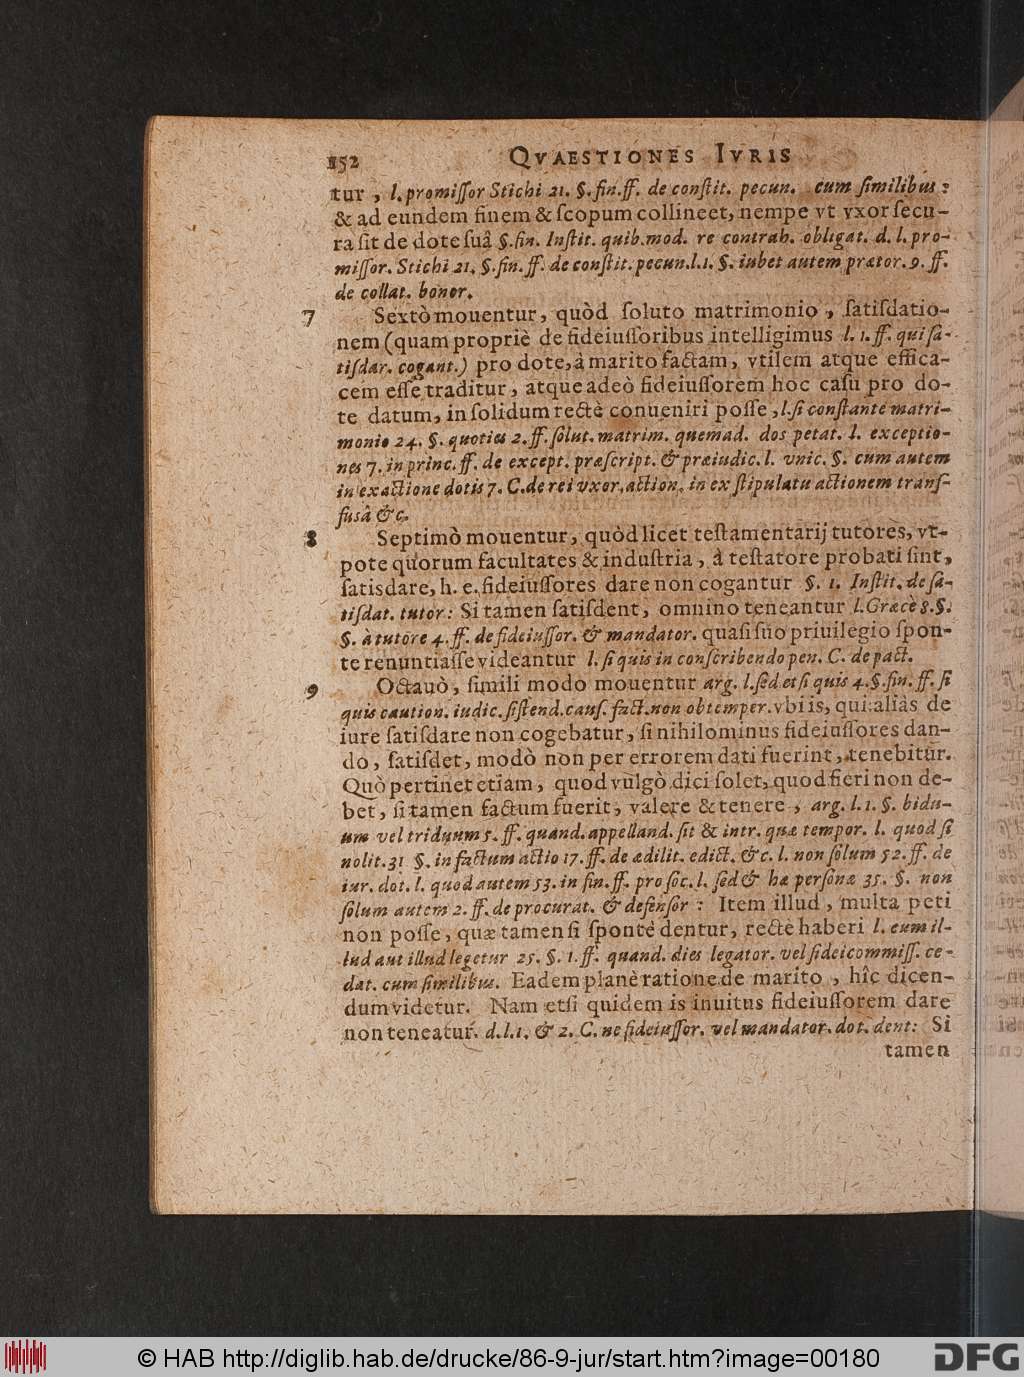 152 QVAESTIONES IVRIS
tur, l. promiſſor Stichi 21. §. fin. ff. de conſtit. pecun. cum ſimilibus:
& ad eundem finem & ſcopum collineet, nempe vt vxor ſecu-
ra ſit de dote ſuâ §. fin. Inſtit. quib. mod. re contrah. obligat. d. l. pro-
miſſor. Stichi 21. §. fin. ff. de conſtit. pecun. l. 1. §. iubet autem prætor. 9. ff.
de collat. bonor.
7 Sextò mouentur, quòd ſoluto matrimonio, ſatiſdatio-
nem (quam propriè de fideiuſſoribus intelligimus l. 1. ff. qui ſa-
tiſdar. cogant.) pro dote, à marito factam, vtilem atque effica-
cem eſſe traditur, atque adeò fideiuſſorem hoc caſu pro do-
te datum, in ſolidum rectè conueniri poſſe, l. ſi conſtante matri-
monio 24. §. quoties 2. ff. ſolut. matrim. quemad. dos petat. l. exceptio-
nes 7. in princ. ff. de except. præſcript. & præiudic. l. vnic. §. cum autem
in exactione dotis 7. C. de rei vxor. action. in ex ſtipulatu actionem tranſ-
fusâ &c.
8 Septimò mouentur, quòd licet teſtamentarij tutores, vt-
pote quorum facultates & induſtria, à teſtatore probati ſint,
ſatisdare, h. e. fideiuſſores dare non cogantur §. 1. Inſtit. de ſa-
tiſdat. tutor: Si tamen ſatiſdent, omnino teneantur l. Græcè 8. §.
§. à tutore 4. ff. de fideiuſſor. & mandator. quaſi ſuo priuilegio ſpon-
te renuntiaſſe videantur l. ſi quis in conſcribendo pen. C. de pact.
9 Octauò, ſimili modo mouentur arg. l. ſed et ſi quis 4. §. fin. ff. ſi
quis caution. iudic. ſiſtend. cauſ. fact. non obtemper. vbi is, qui aliàs de
iure ſatiſdare non cogebatur, ſi nihilominus fideiuſſores dan-
do, ſatiſdet, modò non per errorem dati fuerint, tenebitur.
Quò pertinet etiam, quod vulgò dici ſolet, quod fieri non de-
bet, ſi tamen factum fuerit, valere & tenere, arg. l. 1. §. bidu-
um vel triduum 5. ff. quand. appelland. ſit & intr. quæ tempor. l. quod ſi
nolit. 31 §. in factum actio 17. ff. de ædilit. edict. &c. l. non ſolum 52. ff. de
iur. dot. l. quod autem 53. in fin. ff. pro ſoc. l. ſed & hæ perſonæ 35. §. non
ſolum autem 2. ff. de procurat. & defenſor: Item illud, multa peti
non poſſe, quæ tamen ſi ſpontè dentur, rectè haberi l. eum il-
lud aut illud legetur 25. §. 1. ff. quand. dies legator. vel fideicommiſſ. ce-
dat. cum ſimilibus. Eadem planè ratione de marito, hîc dicen-
dum videtur. Nam etſi quidem is inuitus fideiuſſorem dare
non teneatur. d. l. 1. & 2. C. ne fideiuſſor. vel mandator. dot. dent: Si
tamen
© HAB http://diglib.hab.de/drucke/86-9-jur/start.htm?image=00180 DFG